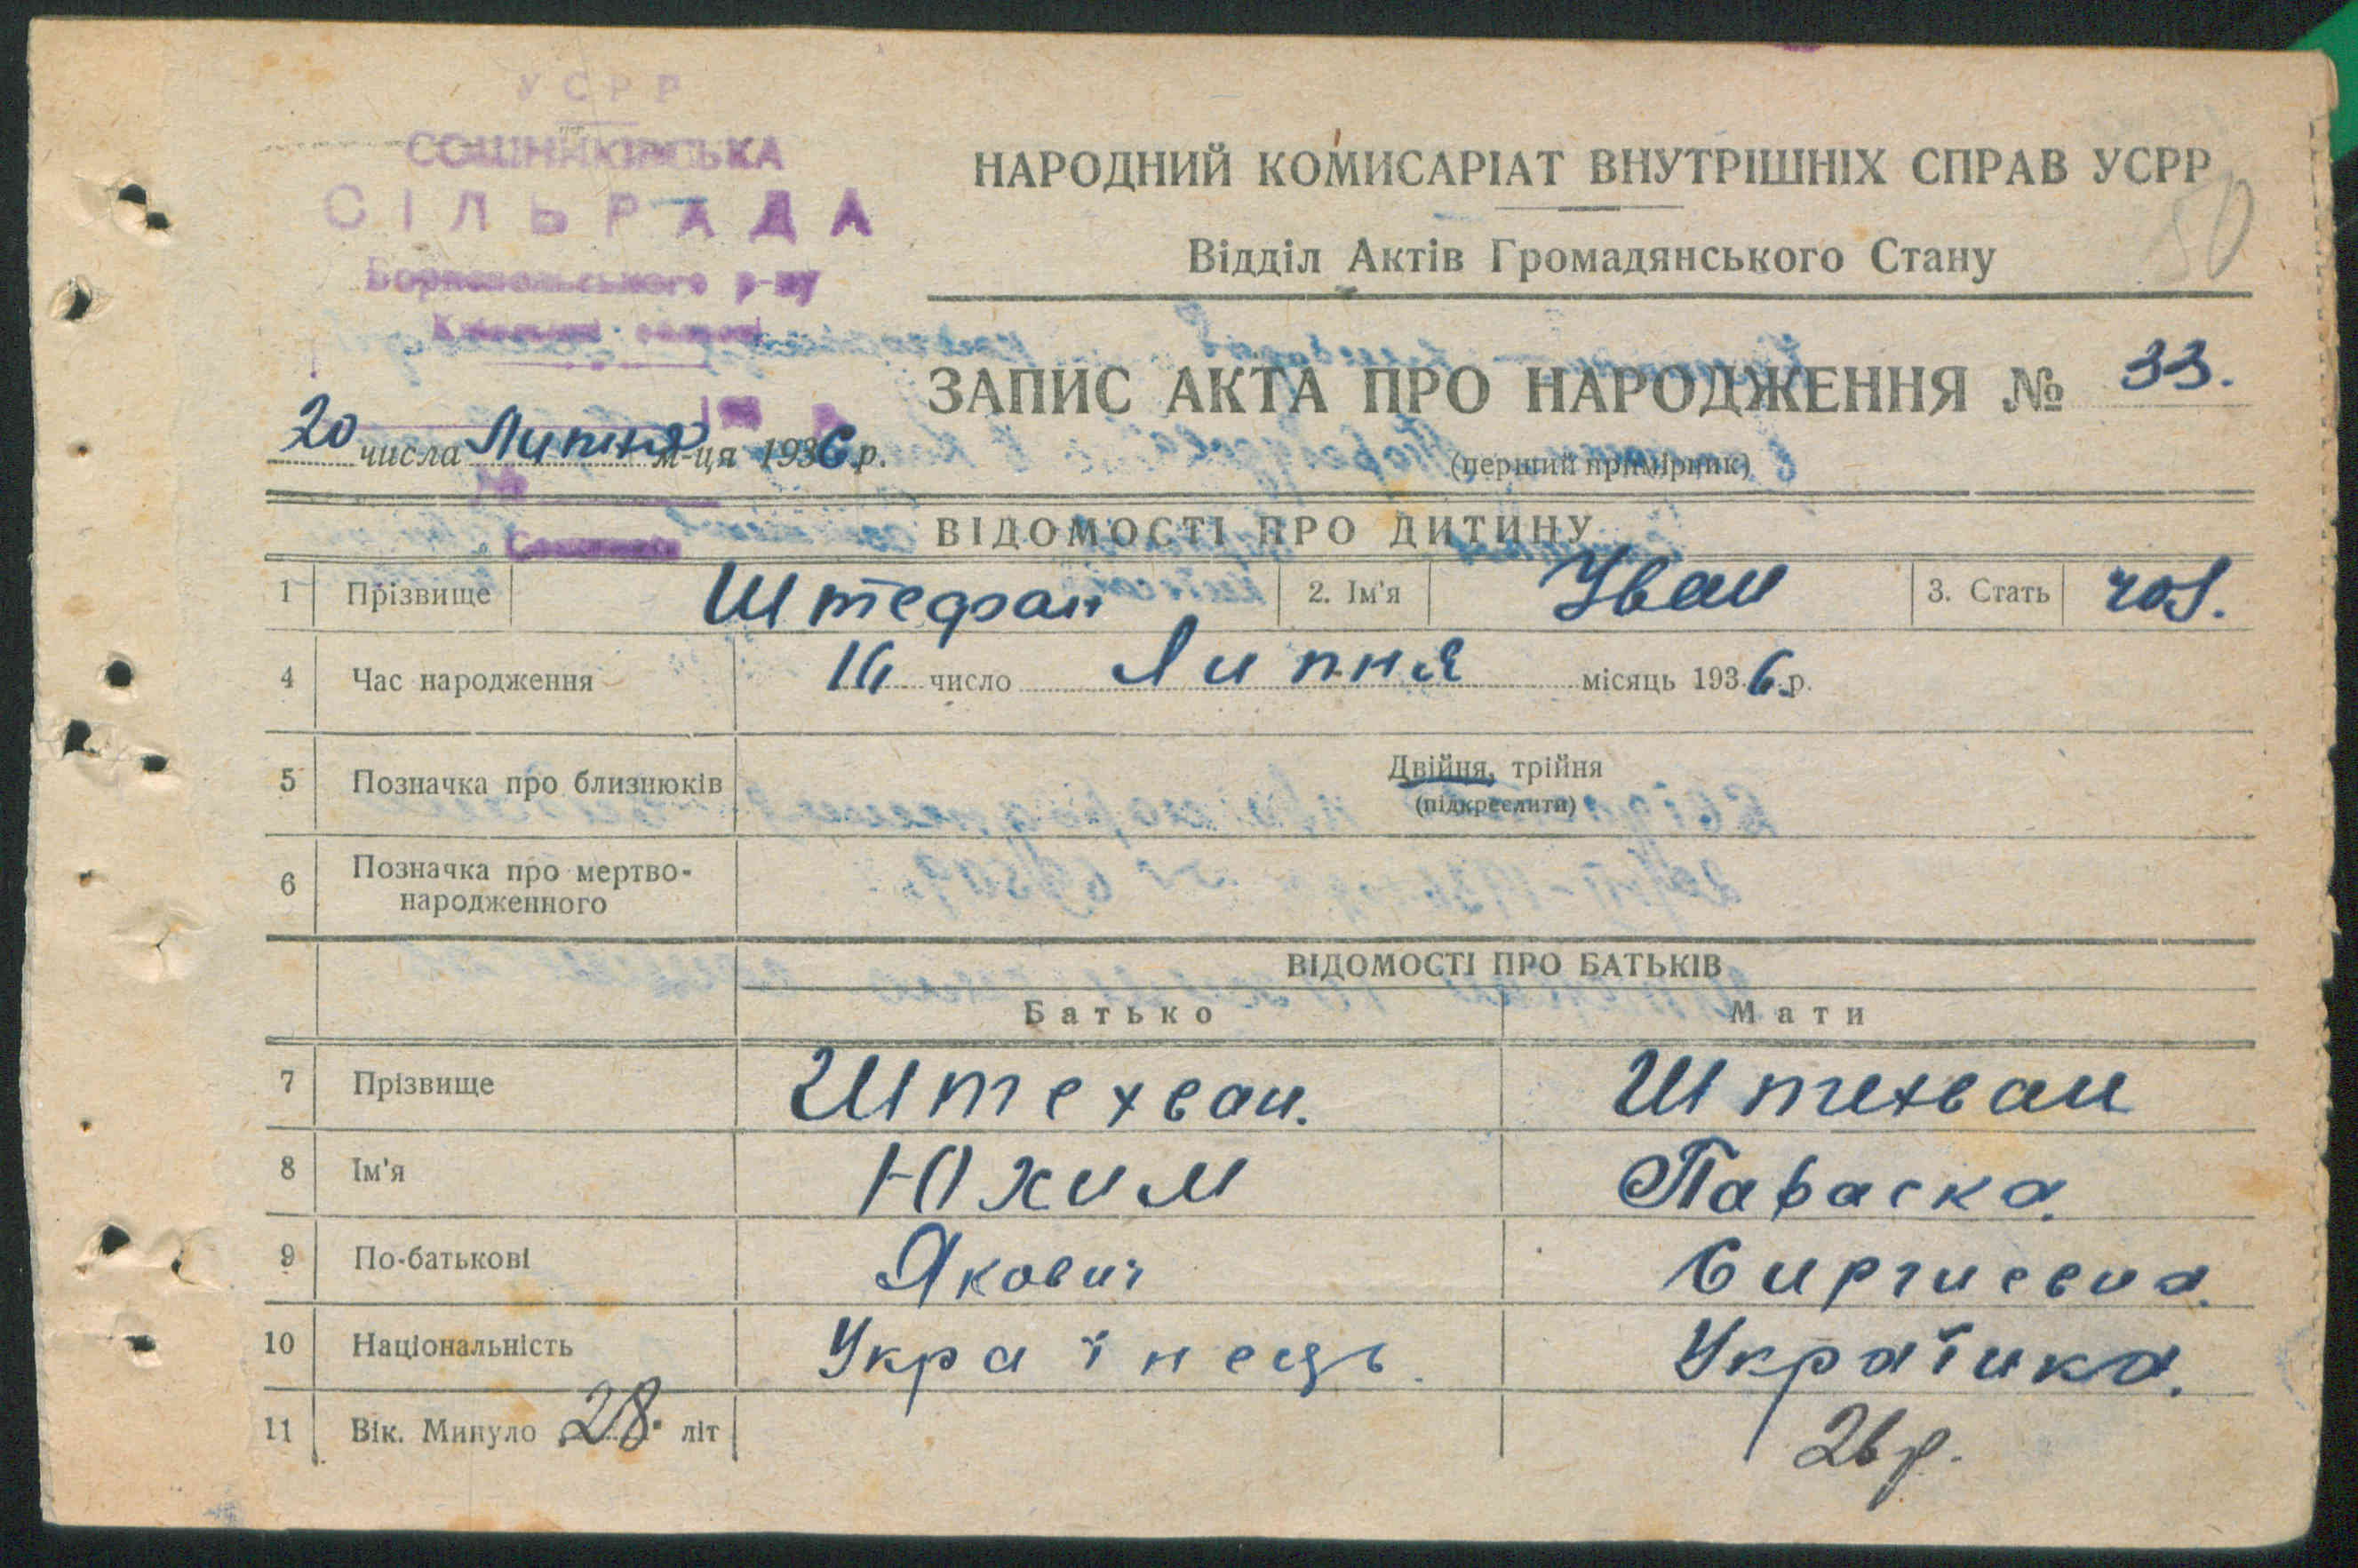 УСРР
СОШНИКІВСЬКА
СІЛЬРАДА
Бориспольського р-ну
Київської області
НАРОДНИЙ КОМИСАРІАТ ВНУТРІШНІХ СПРАВ УСРР
50
Відділ Актів Громадянського Стану
ЗАПИС АКТА ПРО НАРОДЖЕННЯ № 33.
20 числа Липня м-ця 1936 р.
(перший примірник)
ВІДОМОСТІ ПРО ДИТИНУ
1 Прізвище Штефан 2. Ім'я Іван 3. Стать чол.
4 Час народження 16 число Липня місяць 1936 р.
5 Позначка про близнюків Двійня, трійня
(підкреслити)
6 Позначка про мертво-
народженного
ВІДОМОСТІ ПРО БАТЬКІВ
Батько Мати
7 Прізвище Штехван. Штехван
8 Ім'я Юхим Параска.
9 По-батькові Якович Сиргиевна.
10 Національність Українець. Українка.
11 Вік. Минуло 28. літ 26 р.